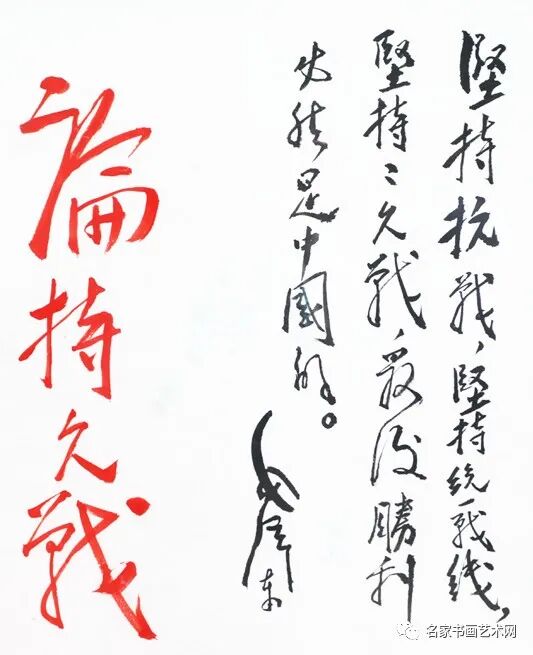 堅持抗戰，堅持統一戰线，
堅持〻久戰，最后勝利
必然是中國的。
毛泽东
論持久戰
名家书画艺术网